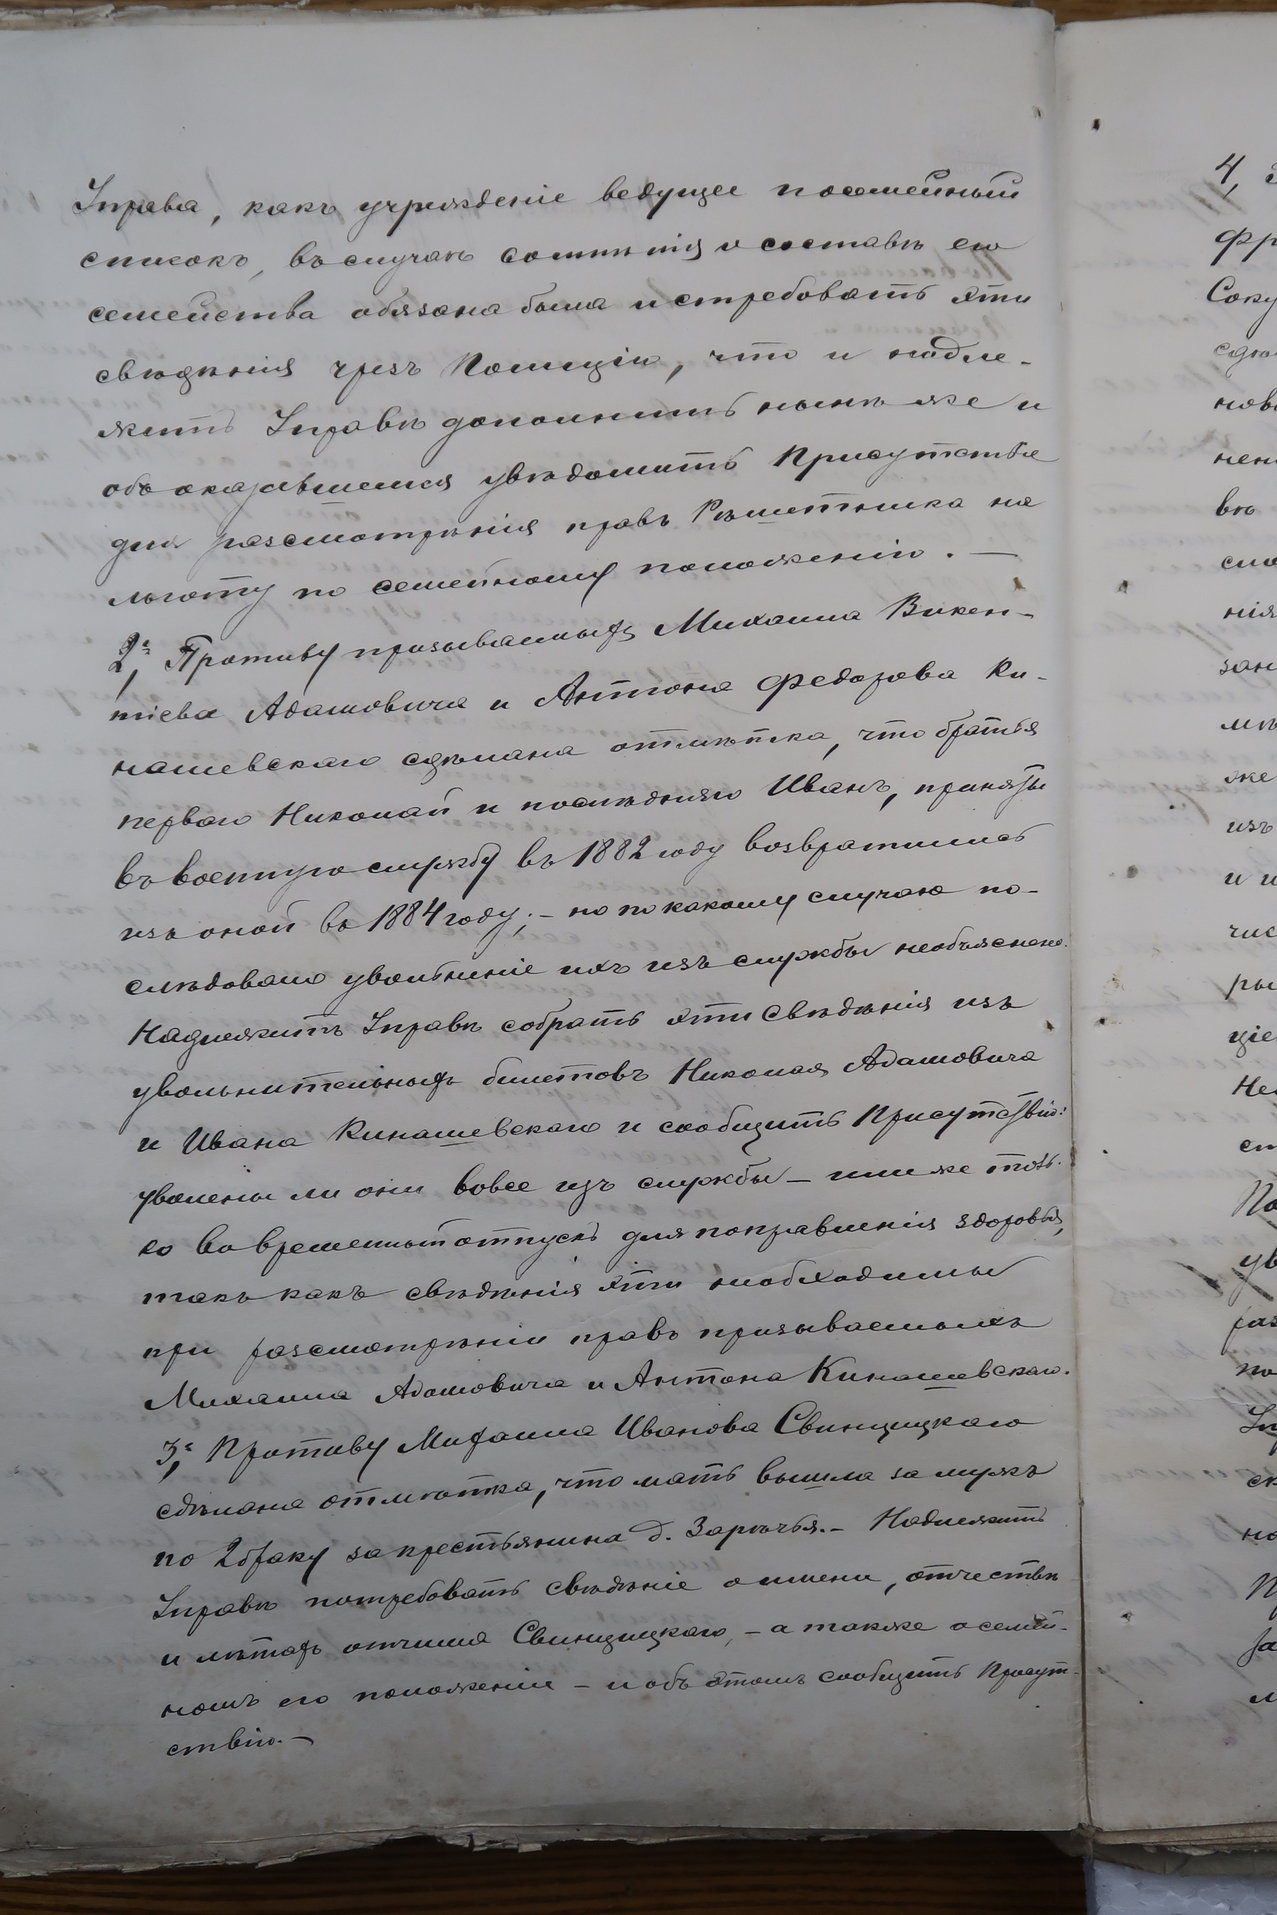 Управа, какъ учрежденіе ведущее посемейный
списокъ, въ случаѣ сомнѣнія о составѣ его
семейства обязана была истребовать эти
свѣдѣнія чрезъ Полицію, что и надле-
житъ Управѣ дополнить нынѣ же и
объ оказавшемся увѣдомить Присутствіе
для разсмотрѣнія правъ Рѣшетника на
льготу по семейному положенію. —
2,, Противу призываемыхъ Михаила Викен-
тіева Адамовича и Антона Федорова Ки-
нашевскаго сдѣлана отмѣтка, что братья
перваго Николай и послѣдняго Иванъ, приняты
въ военную службу въ 1882 году возвратились
изъ оной въ 1884 году; – но по какому случаю по-
слѣдовало увольненіе ихъ изъ службы необъяснено.
Надлежитъ Управѣ собрать эти свѣдѣнія изъ
увольнительныхъ билетовъ Николая Адамовича
и Ивана Кинашевскаго и сообщить Присутствію:
уволены ли они вовсе изъ службы – или же толь-
ко во временный отпускъ для поправленія здоровья,
такъ какъ свѣдѣнія эти необходимы
при разсмотрѣніи правъ призываемыхъ
Михаила Адамовича и Антона Кинашевскаго.
3,, Противу Михаила Иванова Свинцицкаго
сдѣлана отмѣтка, что мать вышла за мужъ
по 2 браку за крестьянина д. Зарѣчья. – Надлежитъ
Управѣ потребовать свѣдѣніе о имени, отчествѣ
и лѣтахъ отчима Свинцицкаго, – а также о семей-
номъ его положеніи – и объ этомъ сообщить Присут-
ствію. –
4,
фр
Соку
сдѣл
нов
нен
въ
сло
нія
зан
мѣ
же
изъ
и и
чис
ры
ціе
Не
ст
По
ув
раз
по
Уп
ск
но